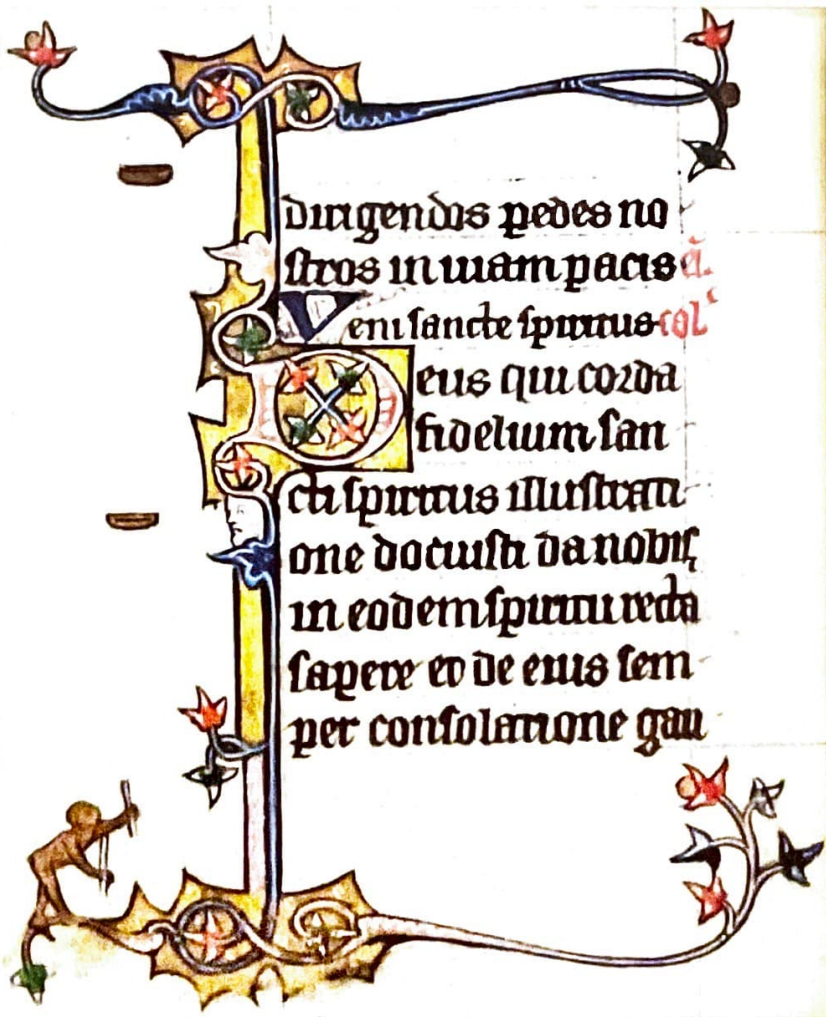 dirigendos pedes no
stros in uiam pacis a͞.
Veni sancte spiritus col'
Deus qui corda
fidelium san
cti spiritus illustrati
one docuisti da nobis
in eodem spiritu recta
sapere et de eius sem
per consolatione gau